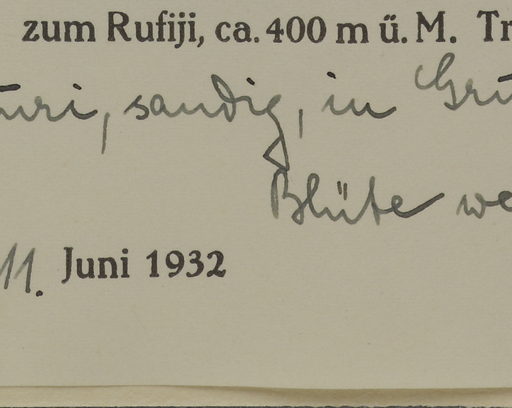 zum Rufiji, ca. 400 m ü. M. Tr
uri, sandig, in Gru
Blüte we
11. Juni 1932